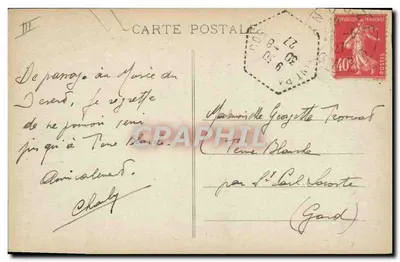 III
CARTE POSTALE
De passage au Musée du
Désert, je regrette
de ne pouvoir venir
jusqu'à Terre Blanche.
Amicalement.
Charly
Mademoiselle Georgette
Terre Blanche
par St Paul Lacoste
(Gard)
40c
POSTES
CARTE-PHILA